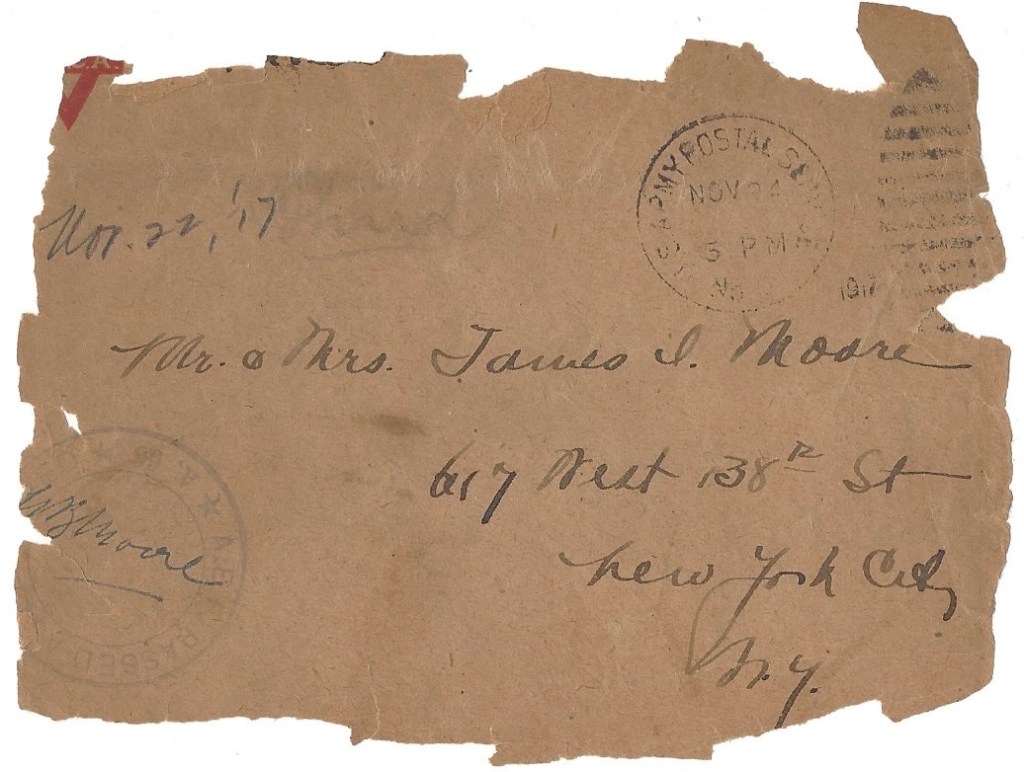 .A.
U.S. ARMY POSTAL SERV
NOV 24
5 PM
No.
1917
Nov. 22, '17
Mr. & Mrs. James I. Moore
617 West 138th St
New York City
N.Y.
WB Moore
A.E.F. PASSED